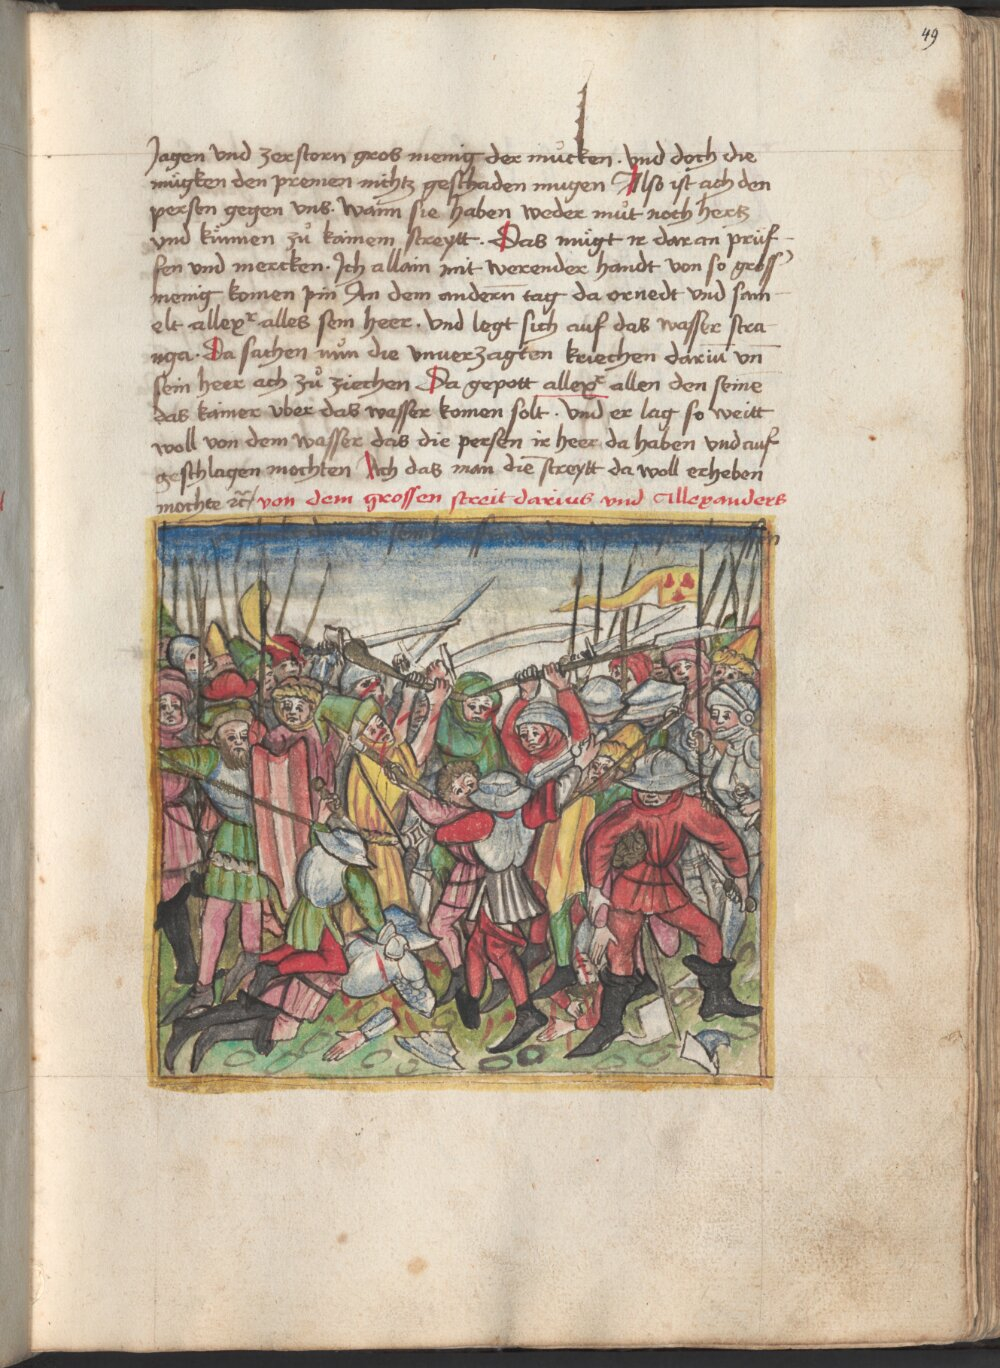 49
Jagen vnd zerstorn gros menig der mucken. vnd doch die
mügken den premen nichtz geschaden mugen Also ist ach den
persen gegen vns. wann sie haben weder müt noch hertz
vnd künnen zů kainem streytt. Das mügt ir daran prüf-
fen vnd mercken. Ich allain mit werender handt von so gross
menig komen pin An dem andern tag da ornedt vnd sam-
elt allexr alles sein heer. vnd legt sich auf das wasser stra-
nga. Da sachen nün die vnuerzagten kriechen dariū vn̄
sein heer ach zů ziechen Da gepott allexr allen den seine
das kainer vber das wasser komen solt. vnd er lag so weitt
woll von dem wasser das die persen ir heer da haben vnd auf
geschlagen mochten Ach das man die streytt da woll erheben
mochte ꝛc̃ von dem grossen streit darius vnd Allexanders